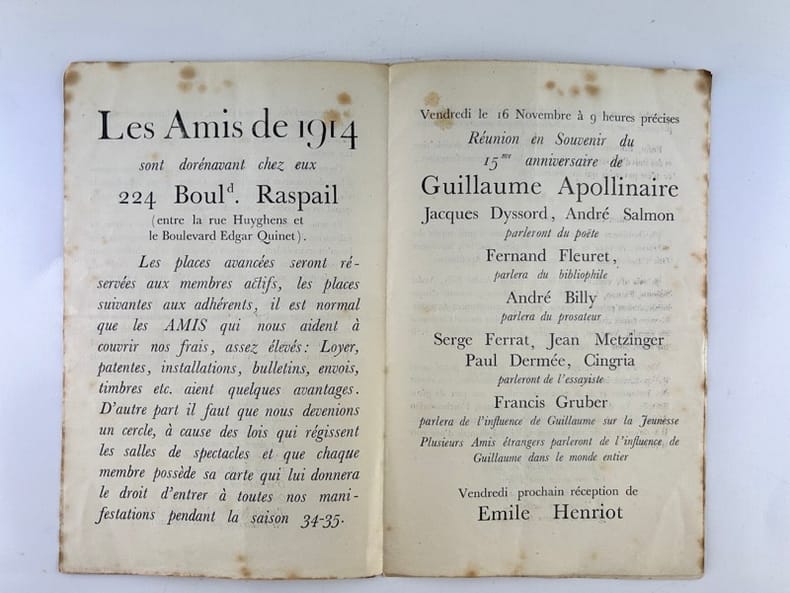 Les Amis de 1914
sont dorénavant chez eux
224 Boulᵈ. Raspail
(entre la rue Huyghens et
le Boulevard Edgar Quinet).
Les places avancées seront ré-
servées aux membres actifs, les places
suivantes aux adhérents, il est normal
que les AMIS qui nous aident à
couvrir nos frais, assez élevés: Loyer,
patentes, installations, bulletins, envois,
timbres etc. aient quelques avantages.
D'autre part il faut que nous devenions
un cercle, à cause des lois qui régissent
les salles de spectacles et que chaque
membre possède sa carte qui lui donnera
le droit d'entrer à toutes nos mani-
festations pendant la saison 34-35.
Vendredi le 16 Novembre à 9 heures précises
Réunion en Souvenir du
15ᵐᵉ anniversaire de
Guillaume Apollinaire
Jacques Dyssord, André Salmon
parleront du poëte
Fernand Fleuret,
parlera du bibliophile
André Billy
parlera du prosateur
Serge Ferrat, Jean Metzinger
Paul Dermée, Cingria
parleront de l'essayiste
Francis Gruber
parlera de l'influence de Guillaume sur la Jeunesse
Plusieurs Amis étrangers parleront de l'influence de
Guillaume dans le monde entier
Vendredi prochain réception de
Emile Henriot